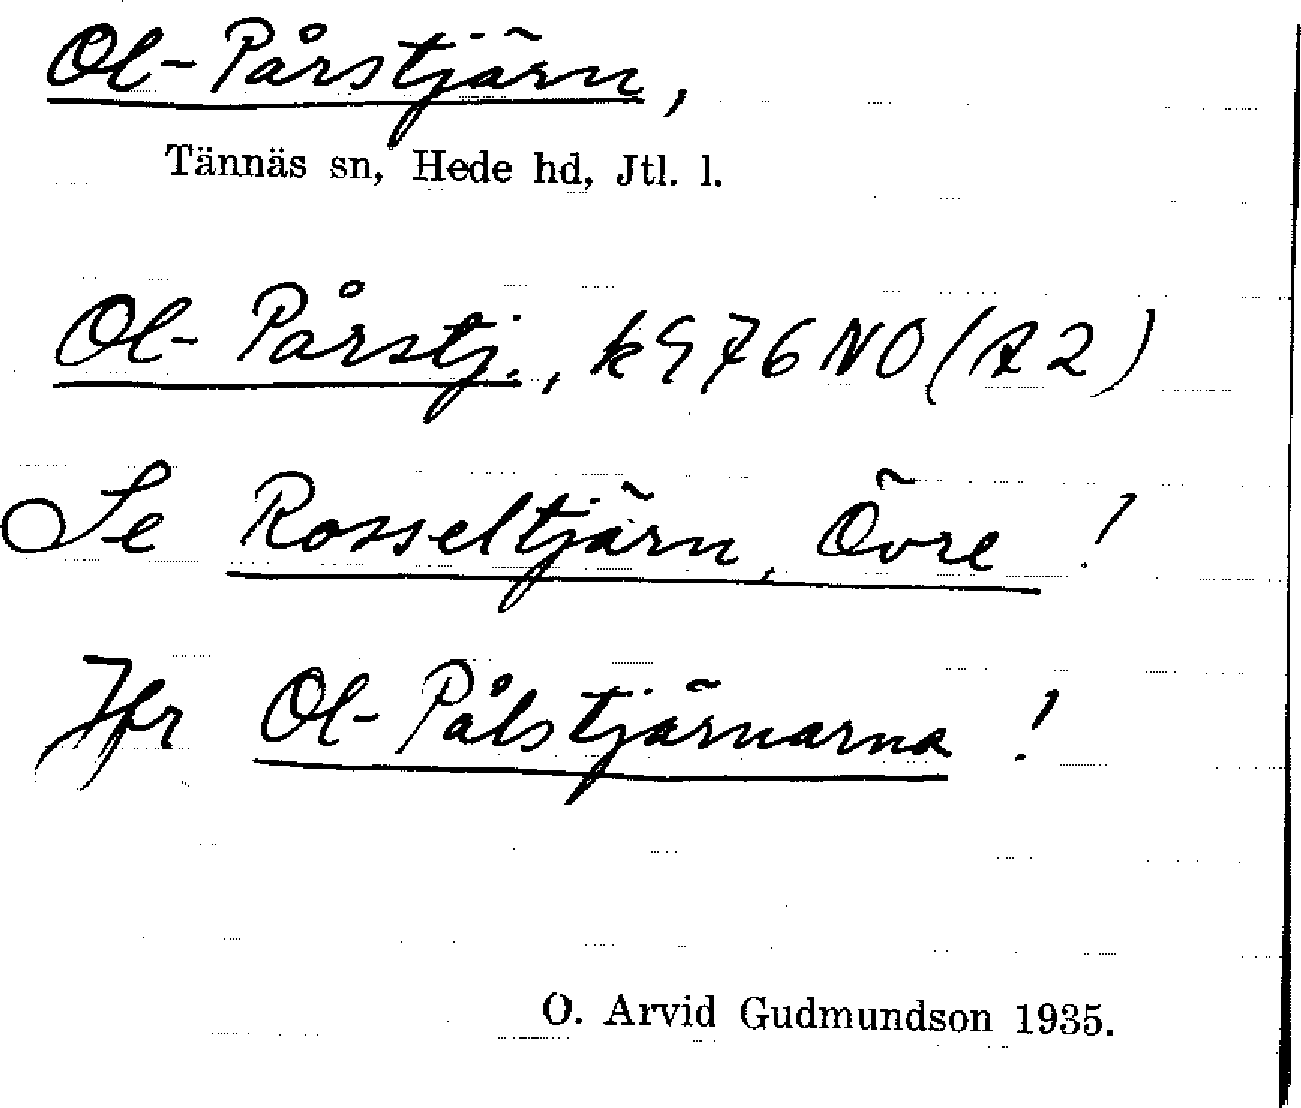 Ol-Pårstjärn,
Tännäs sn, Hede hd, Jtl. l.
Ol-Pårstj., k976NO(A2)
Se Rosseltjärn, Övre!
Jfr Ol-Pålstjärnarna!
O. Arvid Gudmundson 1935.